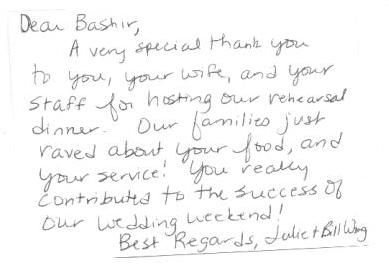 Dear Bashir,
A very special thank you
to you, your wife, and your
staff for hosting our rehearsal
dinner. Our families just
raved about your food, and
your service! You really
contributed to the success of
our wedding weekend!
Best Regards, Juliet + Bill Wong